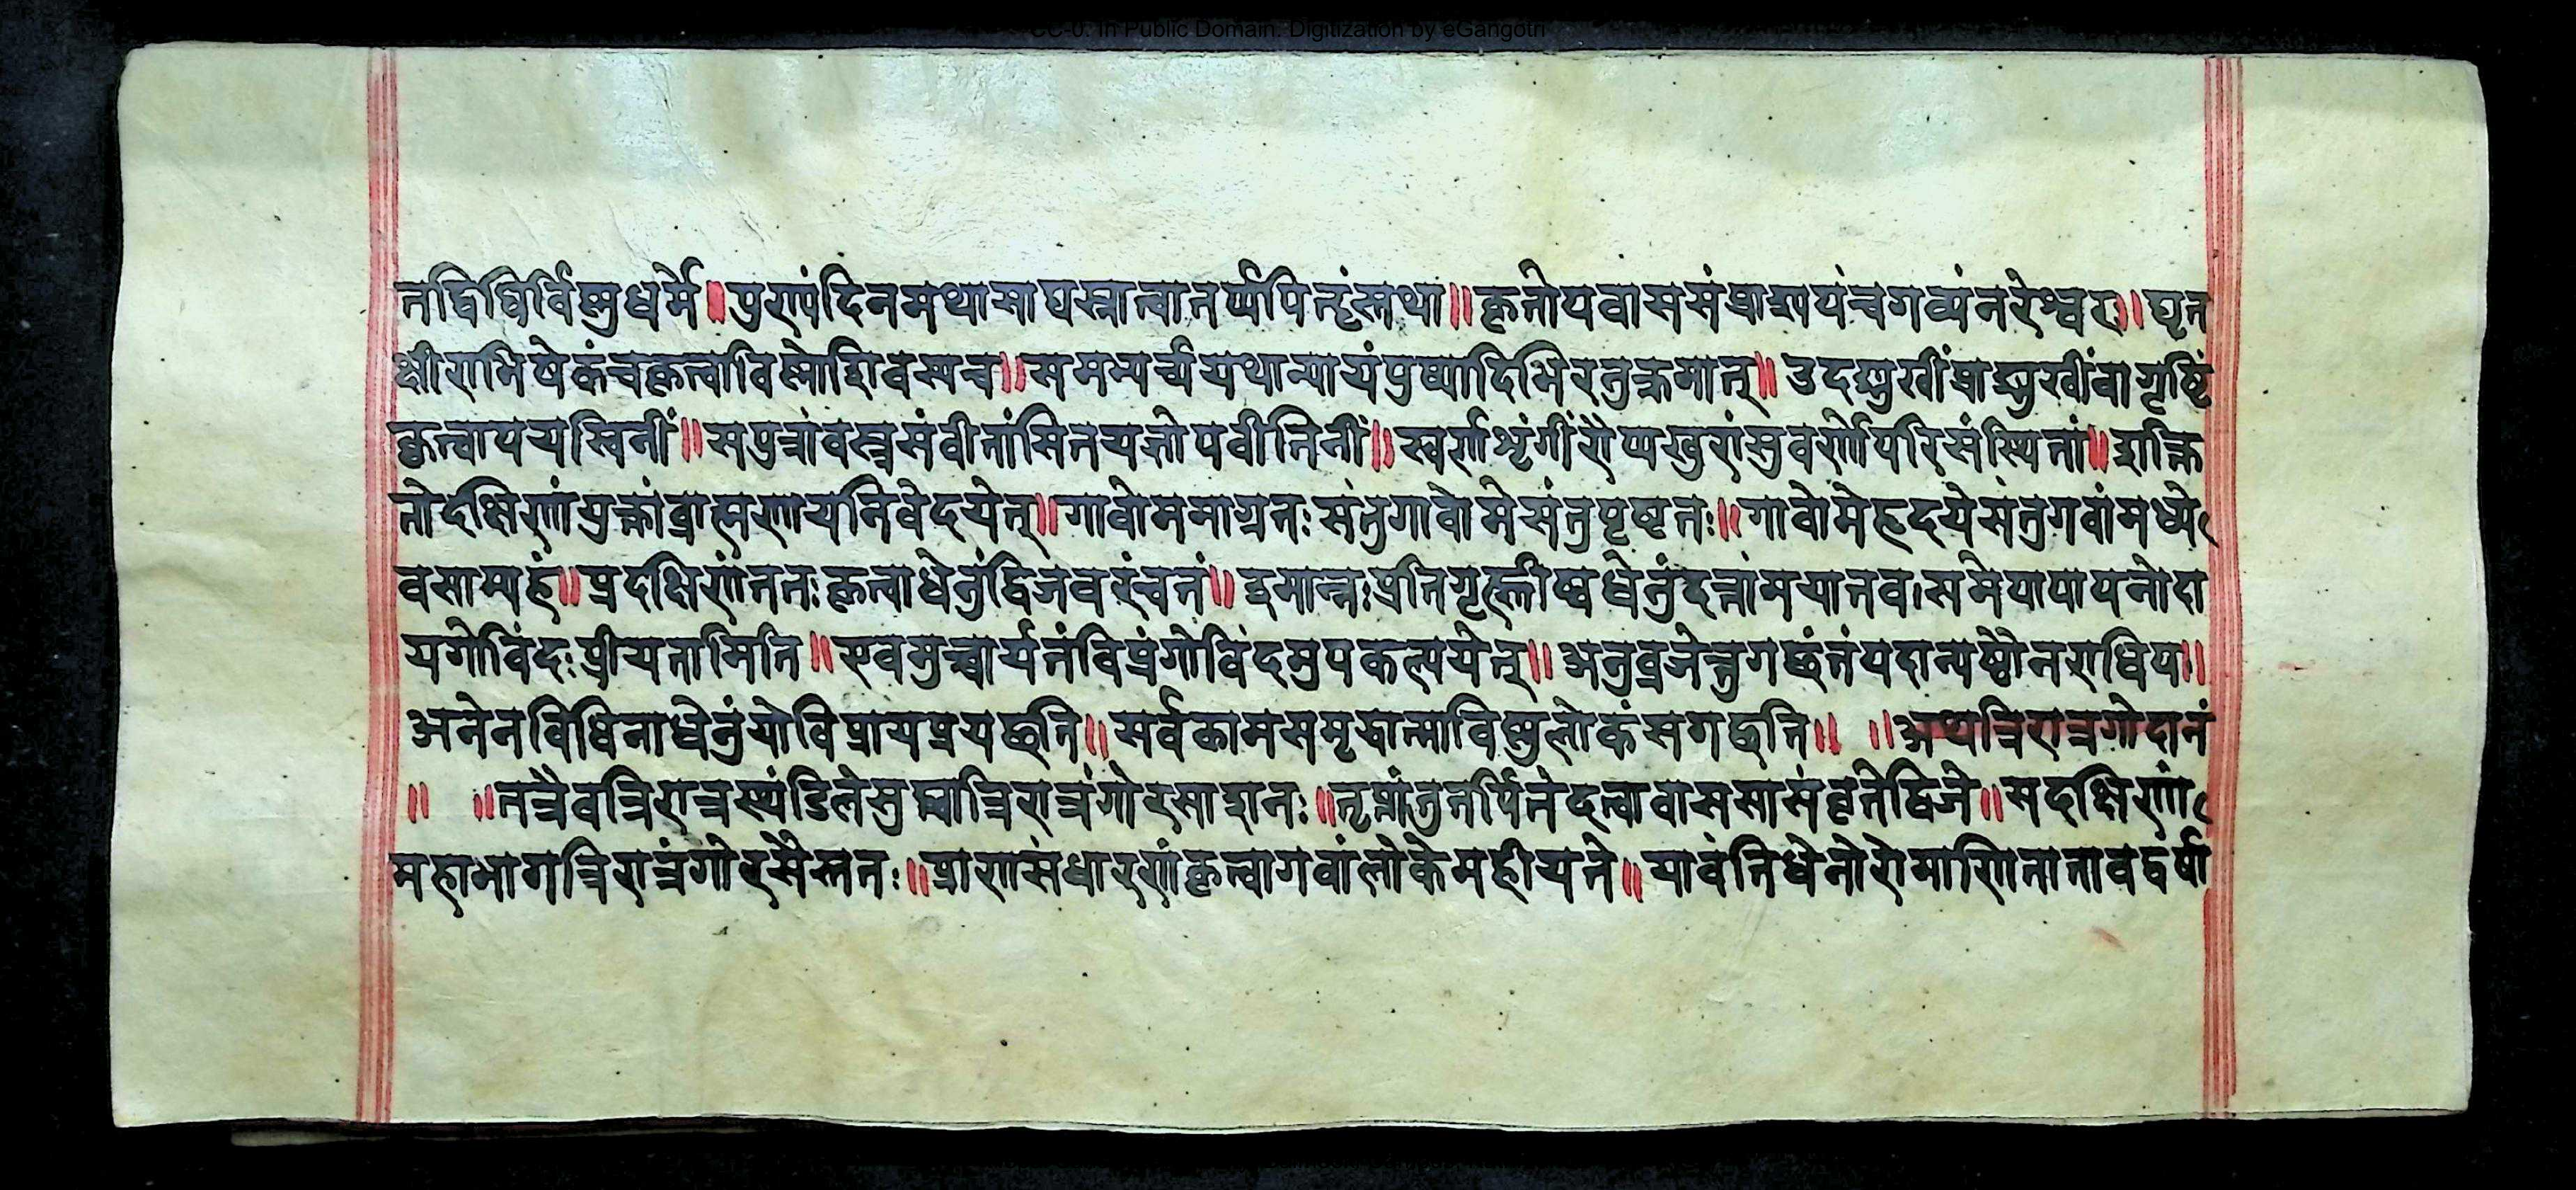 CC-0. In Public Domain. Digitization by eGangotri
तद्विधिर्विष्णुधर्मे॥पुराणंदिनमथासाद्यस्नात्वातर्प्यपितॄंस्तथा॥कृतोपवाससंप्राश्यपंचगव्यंनरेश्वर॥घृत
क्षीराभिषेकंचकृत्वाविष्णोःशिवस्यच॥समभ्यर्च्ययथान्यायंपुष्पादिभिरनुक्रमात्॥उदङ्मुखींप्राङ्मुखींवागृष्टिं
कृत्वापयस्विनीं॥सपुत्रांवस्त्रसंवीतांसितयज्ञोपवीतिनीं॥स्वर्णशृंगींरौप्यखुरांसुवर्णोपरिसंस्थितां॥शक्ति
तोदक्षिणांयुक्तांब्राह्मणायनिवेदयेत्॥गावोममाग्रतःसंतुगावोमेसंतुपृष्टतः॥गावोमेहृदयेसंतुगवांमध्ये
वसाम्यहं॥प्रदक्षिणांततःकृत्वाधेनुंद्विजवरंचतं॥इमान्नःप्रतिगृह्णीष्वधेनुंदत्तांमयातव।समेपापापनोदा
यगोविंदःप्रीयतामिति॥एवमुच्चार्यतंविप्रंगोविंदमुपकल्पयेत्॥अनुव्रजेत्तुगछंतंपदान्यष्टौनराधिप॥
अनेनविधिनाधेनुंयोविप्रायप्रयछति॥सर्वकामसमृद्धात्माविष्णुलोकंसगछति॥ ॥अथत्रिरात्रगोदानं
॥ ॥तत्रैवत्रिरात्रस्थंडिलेसुप्त्वात्रिरात्रंगोरसाशनः॥तृप्तांतुतर्पितंदत्वावाससासंवृतेद्विजे॥सदक्षिणां
महाभागत्रिरात्रंगोरसैस्ततः॥प्राणसंधारणंकृत्वागवांलोकेमहीयते॥यावंतिधेनोरोमाणितातावद्वर्षा